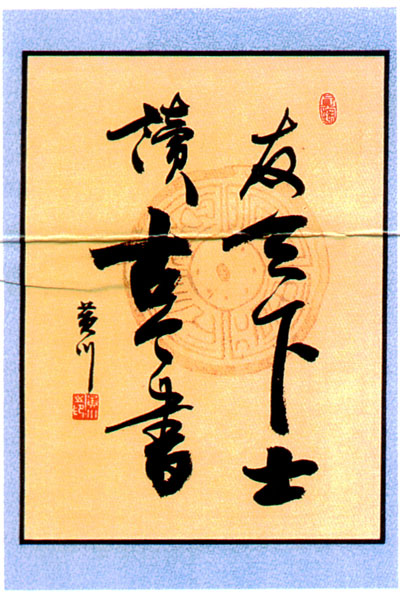 友天下士
讀古今書
黃川